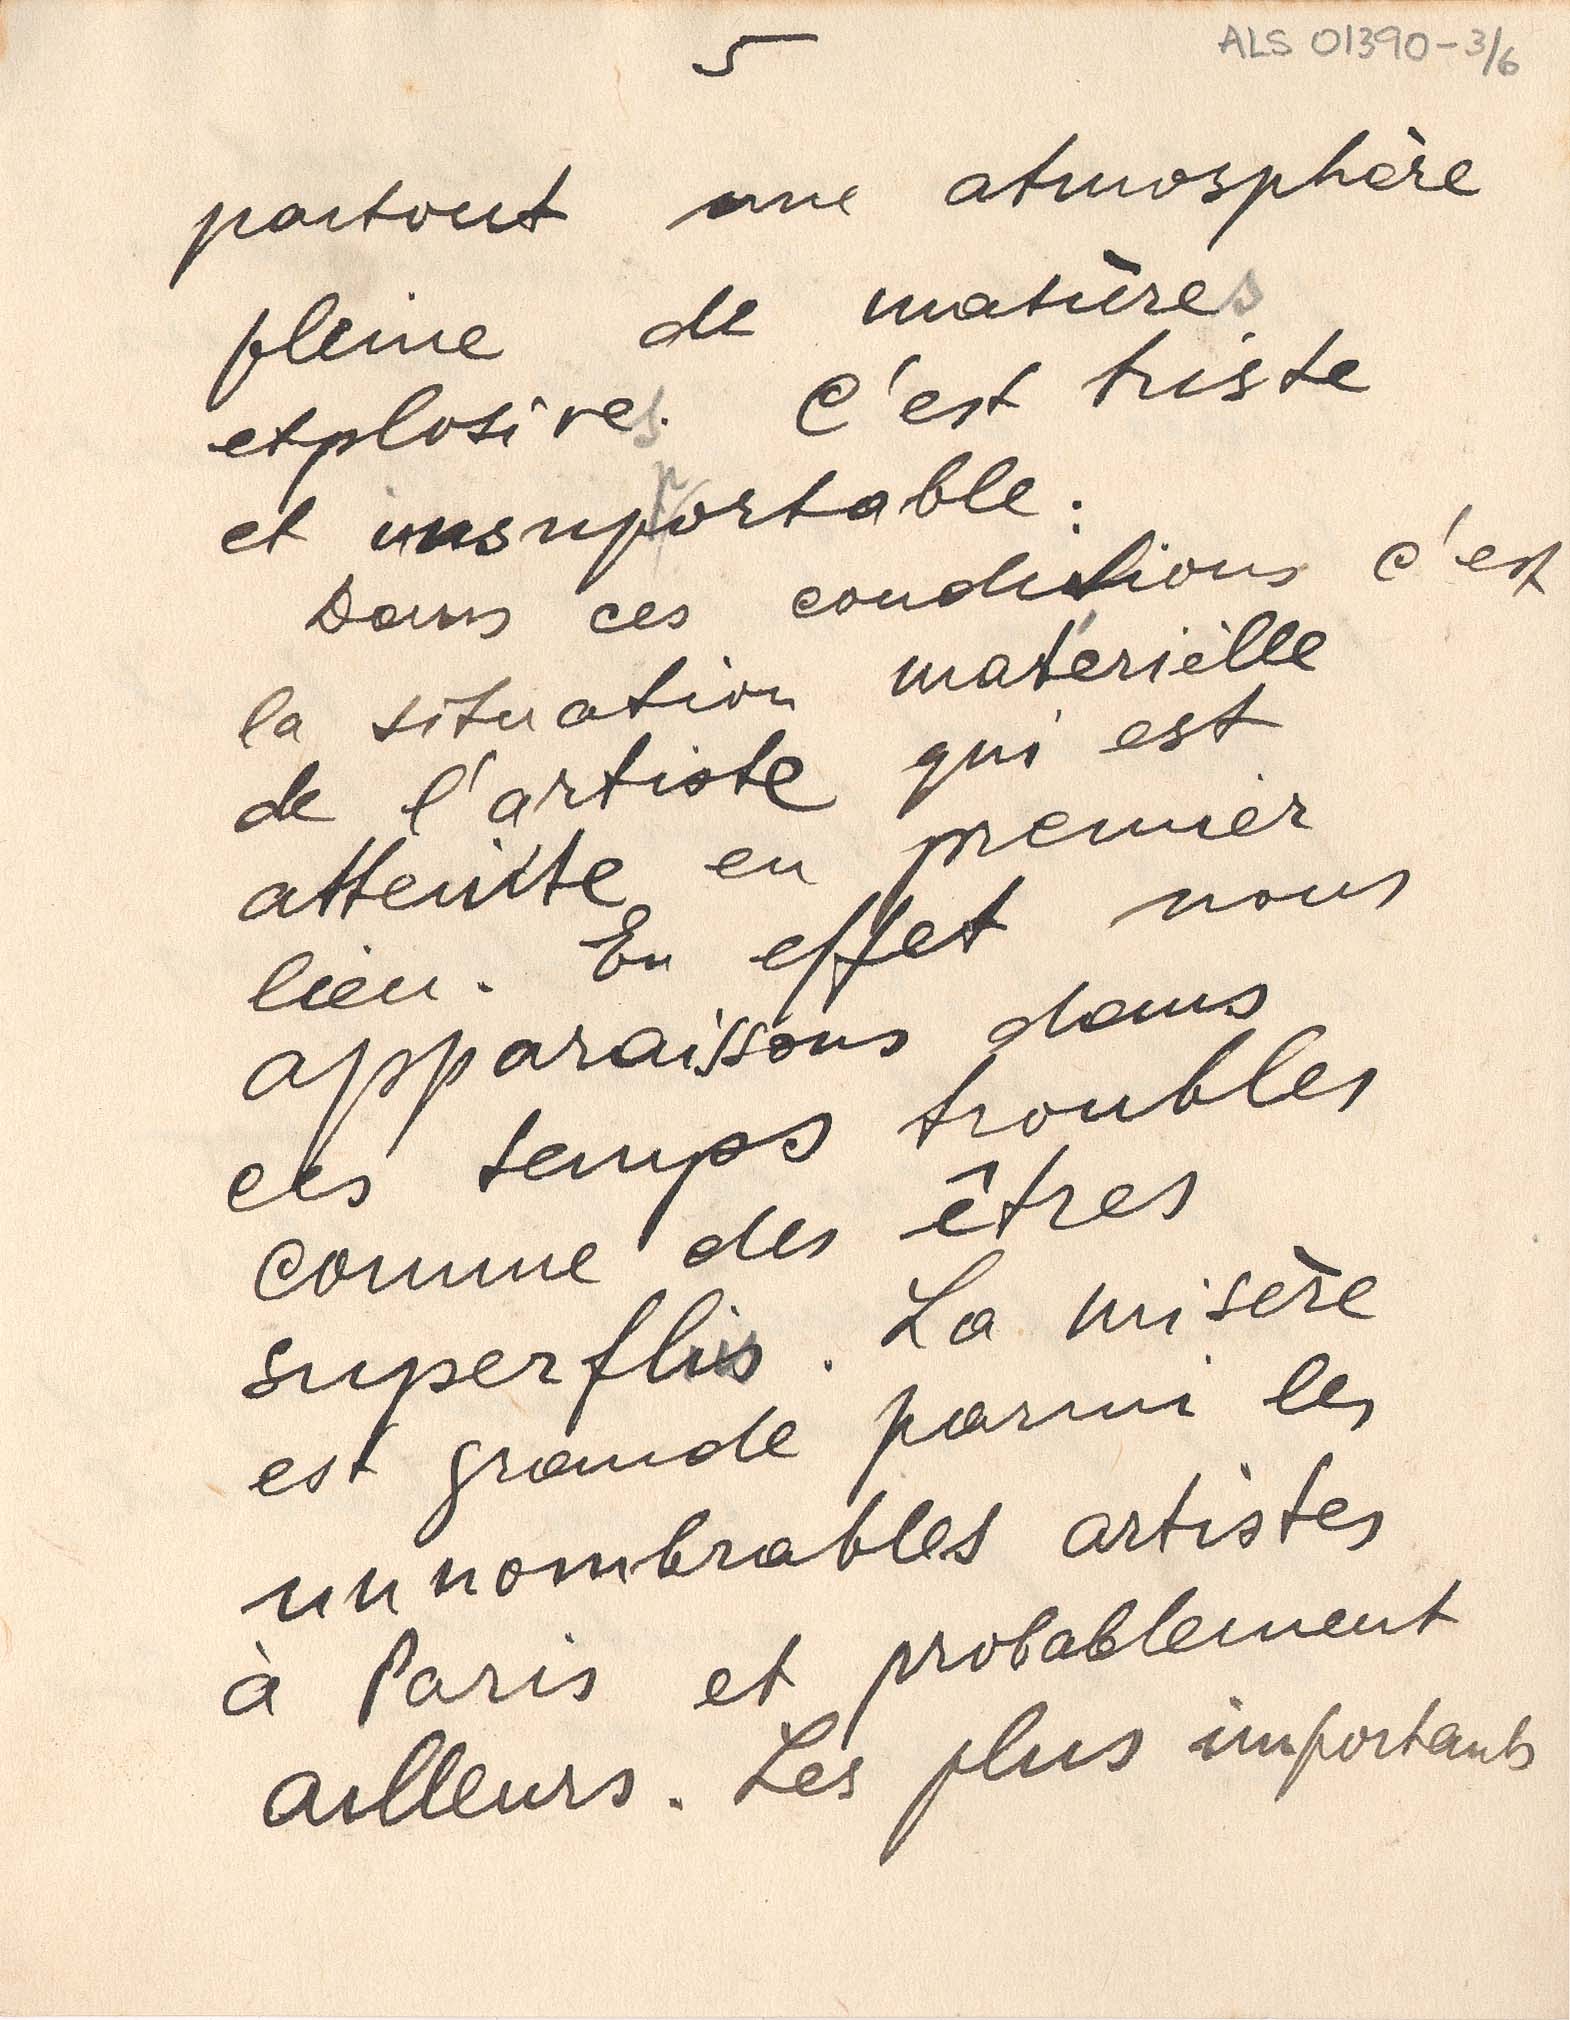 5
ALS 01390-3/6
partout une atmosphère
pleine de matières
explosives. C'est triste
et insupportable.
Dans ces conditions c'est
la situation matérièlle
de l'artiste qui est
atteinte en premier
lieu. En effet nous
apparaissons dans
ces temps troubles
comme des êtres
superflus. La misère
est grande parmi les
unnombrables artistes
à Paris et probablement
ailleurs. Les plus importants